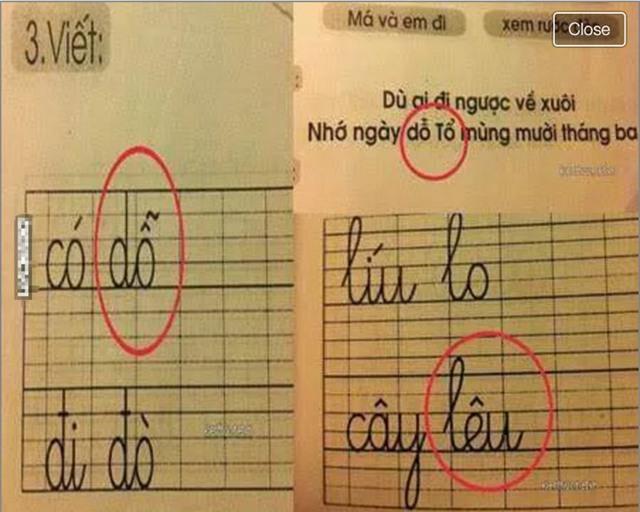 3. Viết:
có dỗ
đi đò
Má và em đi
xem
Close
Dù ai đi ngược về xuôi
Nhớ ngày dỗ Tổ mùng mười tháng ba
líu lo
cây lêu